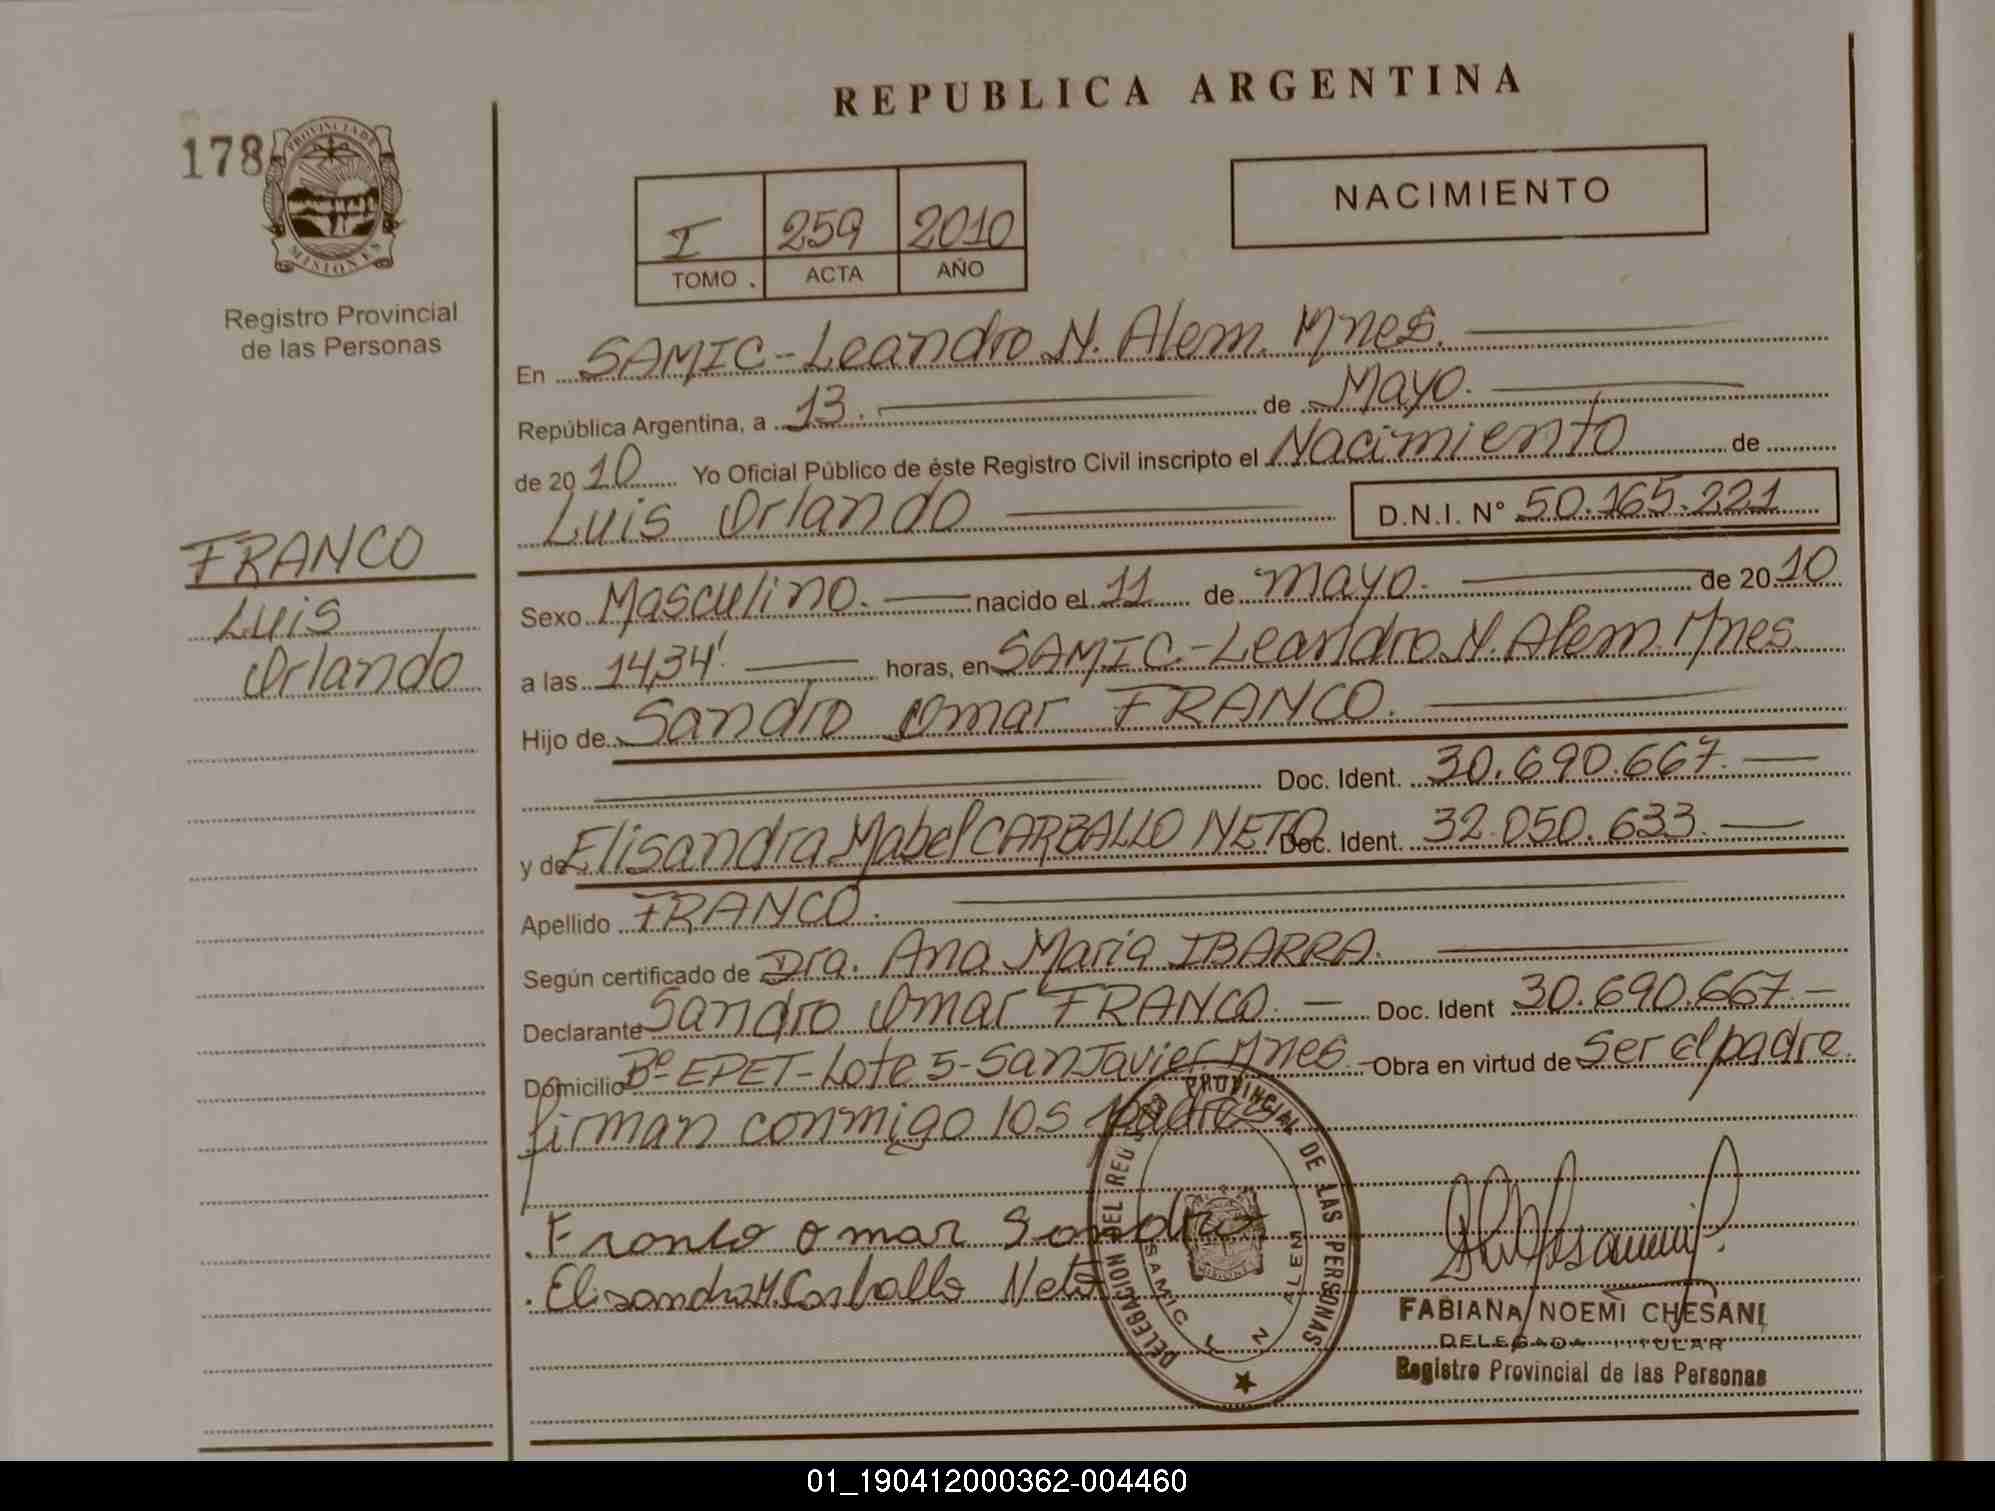 REPUBLICA ARGENTINA
178
PROVINCIA DE
MISIONES
Registro Provincial
de las Personas
I 259 2010
TOMO . ACTA AÑO
NACIMIENTO
En SAMIC - Leandro N. Alem. Mnes.
República Argentina, a 13. de Mayo.
de 2010 Yo Oficial Público de éste Registro Civil inscripto el Nacimiento de
Luis Orlando D.N.I. N° 50.165.221
FRANCO
Luis
Orlando
Sexo Masculino. nacido el 11 de mayo. de 2010
a las 14,34'. horas, en SAMIC - Leandro N. Alem. Mnes.
Hijo de Sandro Omar FRANCO.
Doc. Ident. 30.690.667.
y de Elisandra Mabel CARBALLO NETO Doc. Ident. 32.050.633.
Apellido FRANCO.
Según certificado de Dra. Ana María IBARRA.
Declarante Sandro Omar FRANCO. Doc. Ident 30.690.667.
Domicilio Bº EPET - Lote 5 - San Javier Mnes. Obra en virtud de Ser el padre.
firman conmigo los padres
Franco Omar Sandro
Elisandra M. Carballo Neto
DELEGACION DEL REG PROVINCIAL DE LAS PERSONAS
SAMIC L N ALEM
MISIONES
FABIANA NOEMI CHESANI
DELEGADA TITULAR
Registro Provincial de las Personas
01_190412000362-004460